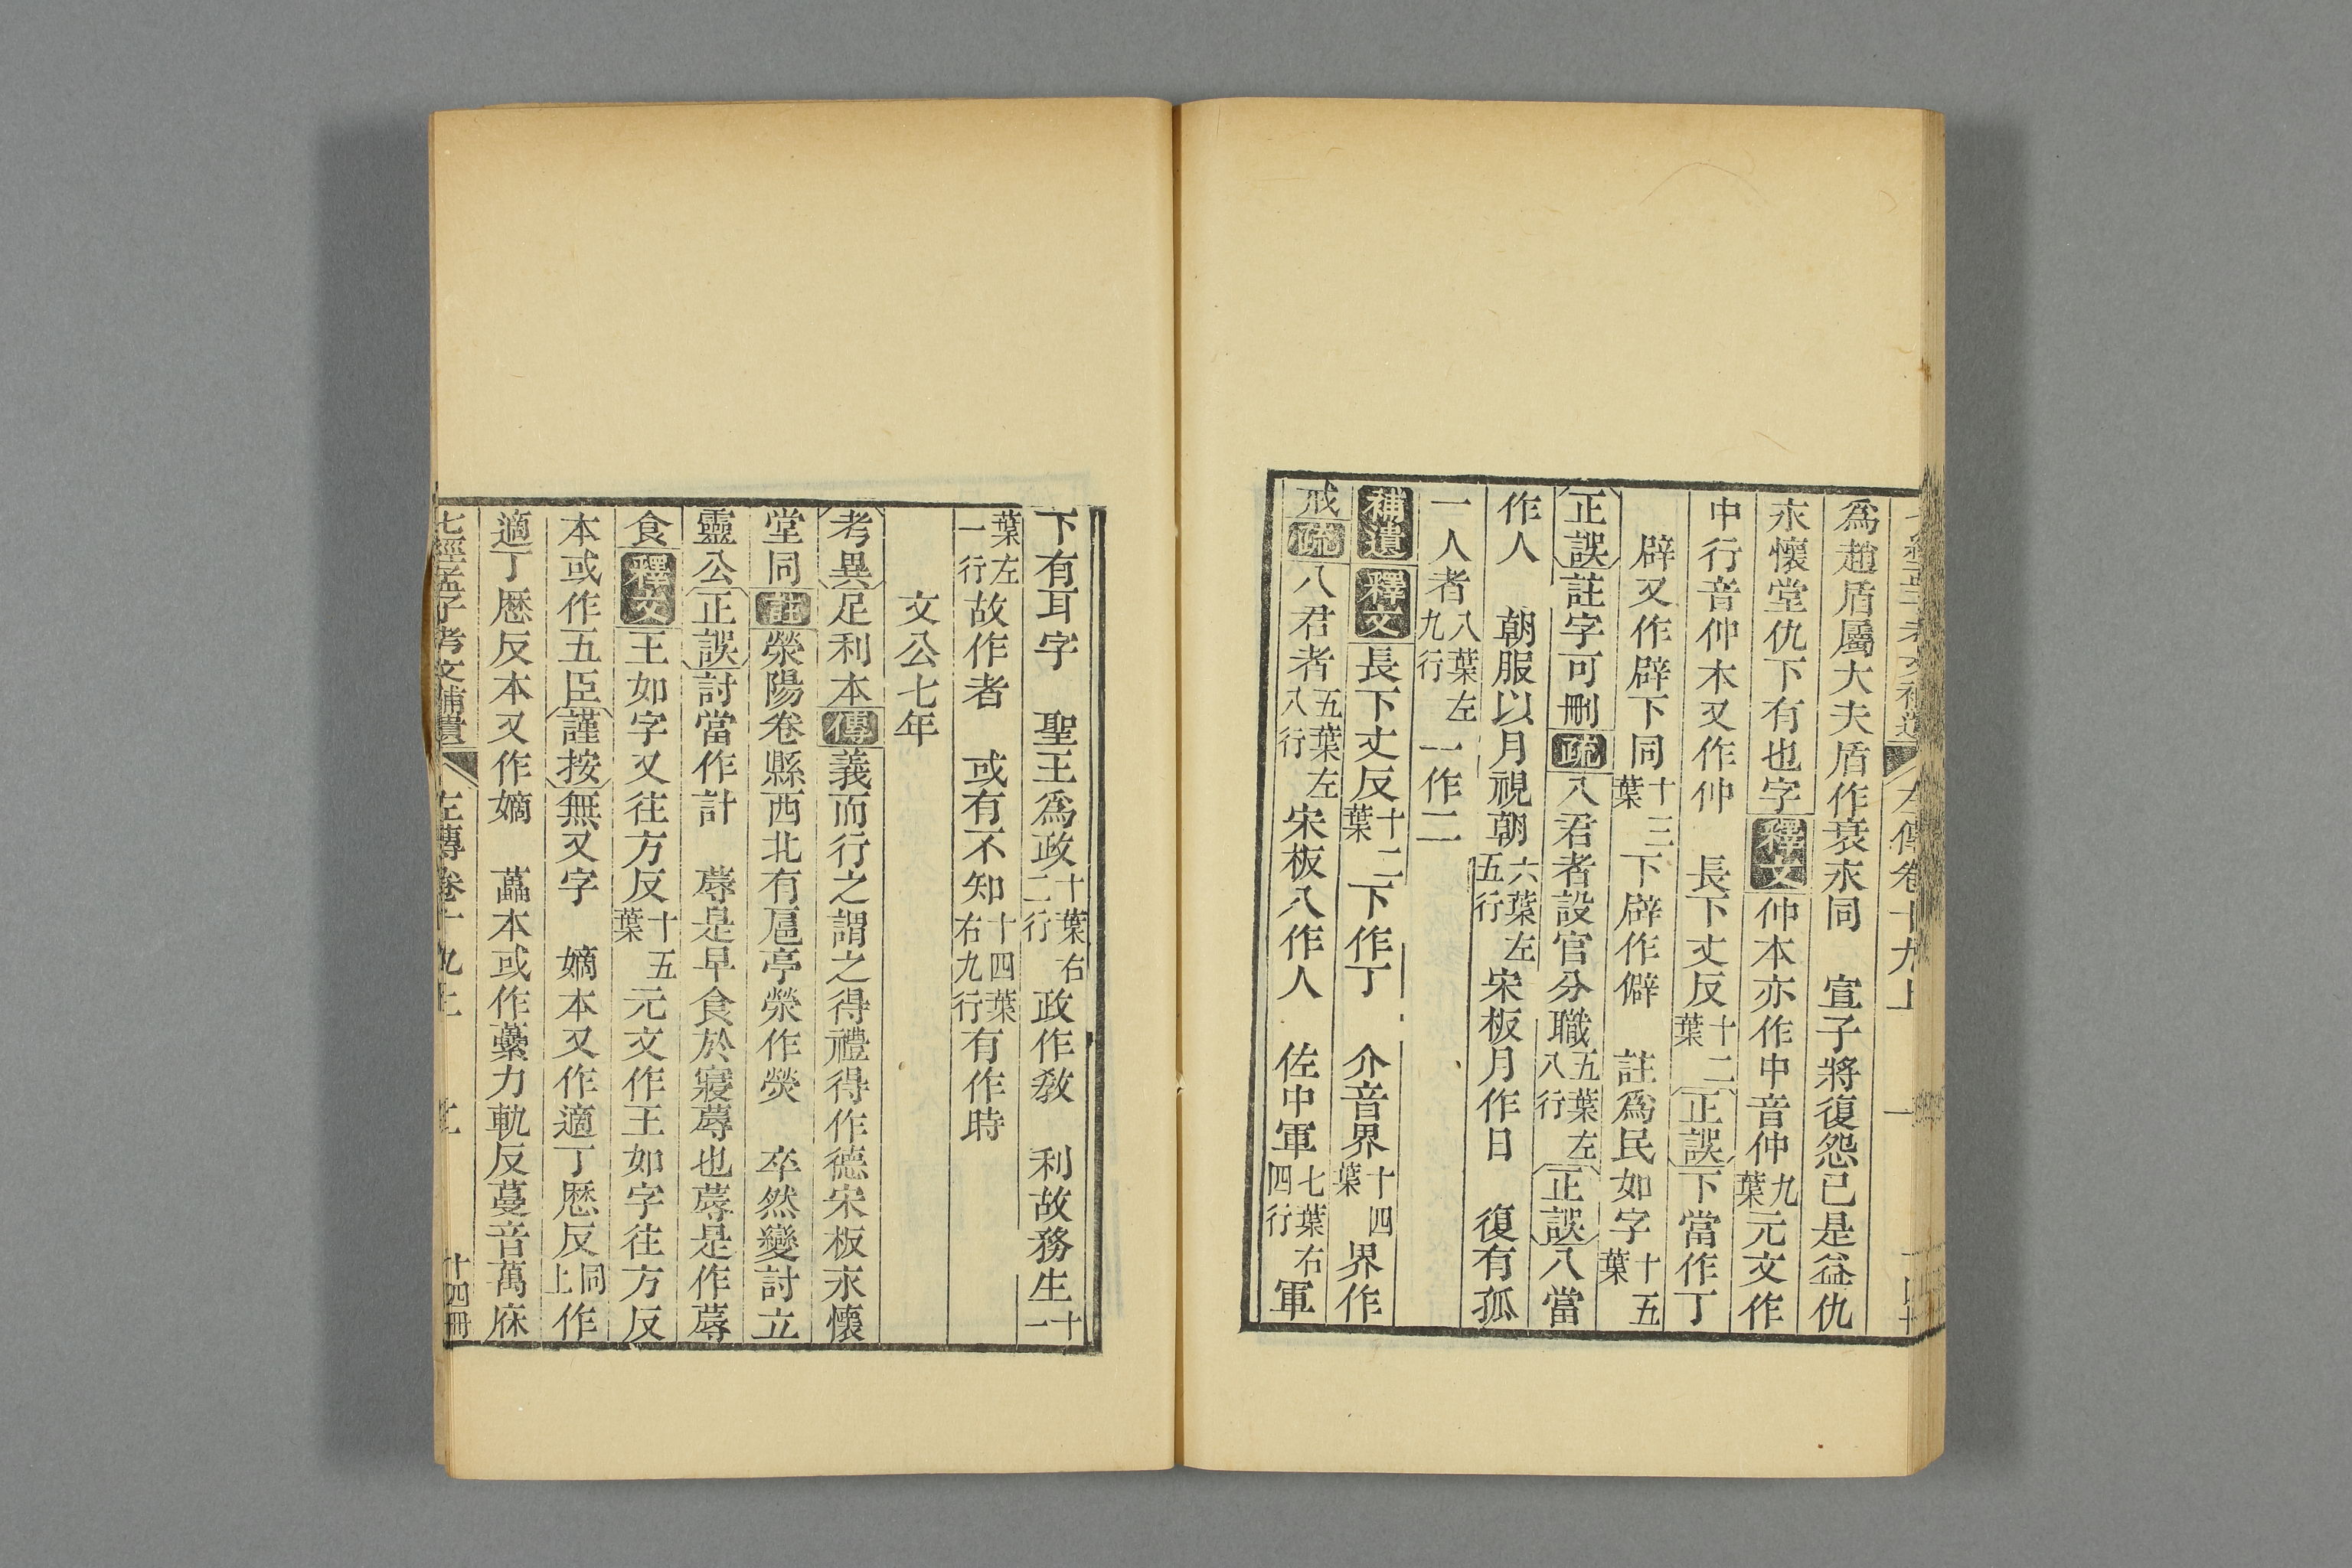 為趙盾屬大夫盾作衰永同　宣子將復怨已是益仇
永懷堂仇下有也字釋文仲本亦作中音仲九葉元文作
中行音仲木又作仲　長下丈反十二葉正誤下當作丁
辟又作辟下同十三葉下辟作僻　註為民如字十五葉
正誤註字可刪疏八君者設官分職五葉左八行正誤八當
作人　朝服以月視朝六葉左五行宋板月作日　復有孤
一人者八葉左九行一作二
補遺釋文長下丈反十二葉下作丁　介音界十四葉界作
戒疏八君者五葉左八行宋板八作人　佐中軍七葉右四行軍
下有耳字　聖王為政十葉右二行政作敎　利故務生十一
葉左一行故作者　或有不知十四葉右九行有作時
文公七年
考異足利本傳義而行之謂之得禮得作德宋板永懷
堂同註滎陽卷縣西北有扈亭滎作熒　卒然變討立
靈公正誤討當作計　蓐是早食於寢蓐也蓐是作蓐
食釋文王如字又往方反十五葉元文作王如字往方反
本或作五臣謹按無又字　嫡本又作適丁歷反同上作
適丁歷反本又作嫡　藟本或作虆力軌反蔓音萬庥
七經孟子考文補遺　左傳卷十九上　十四冊